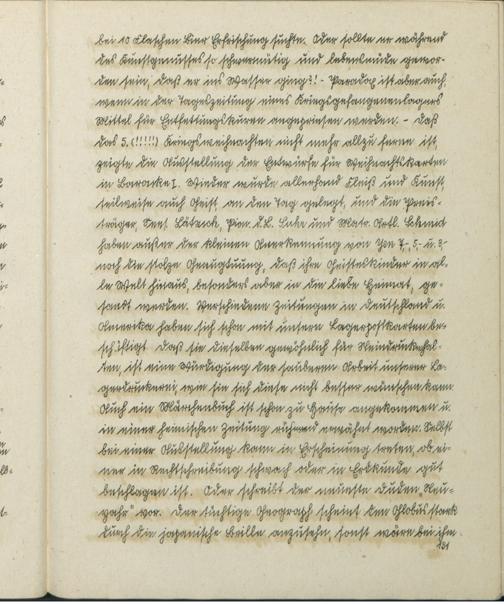 bei 10 Flaschen Bier Erfrischung suchte. Oder sollte er während
des Kunstgenusses so schwermütig und lebensmüde gewor-
den sein, daß er ins Wasser ging?! - Paradox ist aber auch,
wenn in der Tageszeitung eines Kriegsgefangenenlagers
Mittel für Entfettungskuren angepriesen werden. - Daß
das 5.(!!!!!) Kriegsweihnachten nicht mehr allzu ferne ist,
zeigte die Ausstellung der Entwürfe für Weihnachtskarten
in Baracke I. Wieder wurde allerhand Fleiß und Kunst,
teilweise auch Geist, an den Tag gelegt, und die Preis-
träger, Sees. Pion. d.L. und Matr. Artl.
haben außer der kleinen Anerkennung von Yen 7,- 5,- u. 3,-
noch die stolze Genugtuung, daß ihre Geisteskinder in al-
le Welt hinaus, besonders aber in die liebe Heimat, ge-
sandt werden. Verschiedene Zeitungen in Deutschland u.
Amerika haben sich schon mit unsern Lagerpostkarten be-
schäftigt. Daß sie dieselben gewöhnlich für Steindrucke hal-
ten, ist eine Würdigung der sauberen Arbeit unserer La-
gerdruckerei, wie sie sich diese nicht besser wünschen kann.
Auch ein Märchenbuch ist schon zu Hause angekommen u.
in einer heimischen Zeitung rühmend erwähnt worden. Selbst
bei einer Ausstellung kann in Erscheinung treten, ob ei-
ner in Rechtschreibung schwach oder in Erdkunde gut
beschlagen ist. Oder schreibt der neueste Duden „Neu-
jahr" vor. Der tüchtige Geograph scheint den Globus stark
durch die japanische Brille anzusehn, sonst wäre bei ihm
131